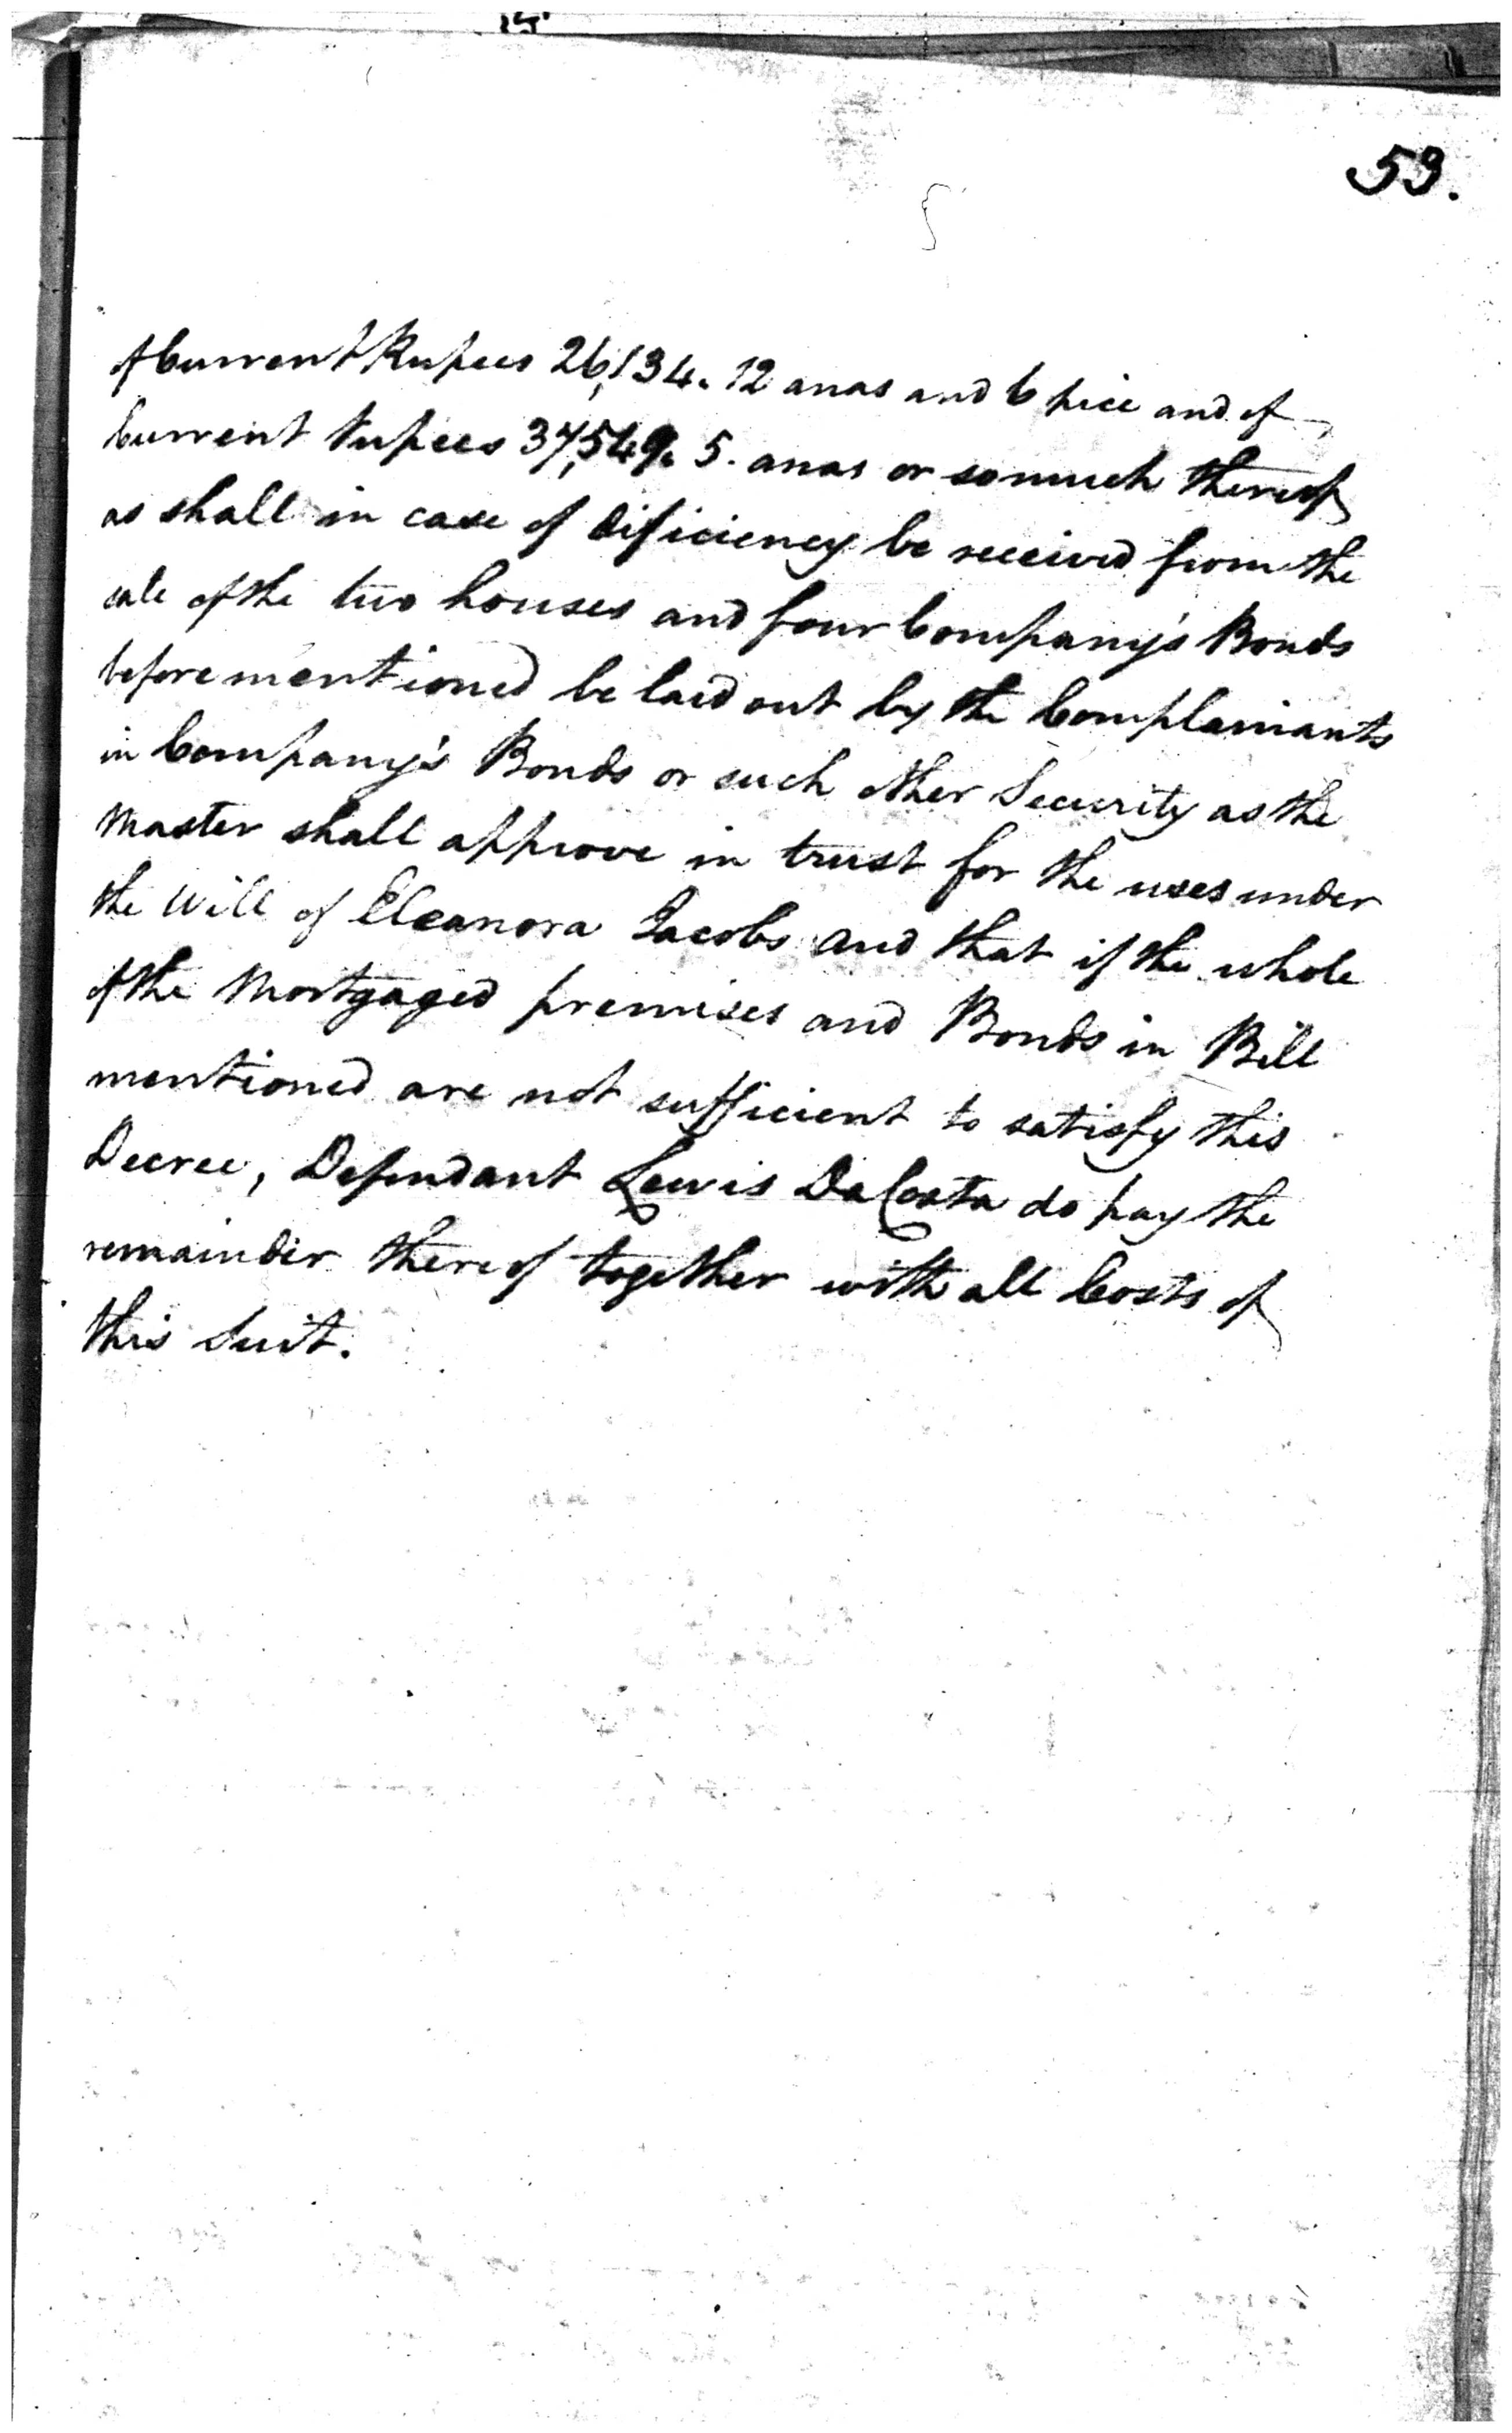 53.
of Current Rupees 26,134. 12 anas and 6 pice and of
Current rupees 37,549. 5. anas or so much thereof
as shall in case of dificiency be received from the
sale of the two houses and four Company's Bonds
before mentioned be laid out by the Complainants
in Company's Bonds or such other Security as the
Master shall approve in trust for the uses under
the Will of Eleanora Jacobs and that if the whole
of the Mortgaged premises and Bonds in Bill
mentioned are not sufficient to satisfy this
Decree, Defendant Lewis DaCosta do pay the
remainder thereof together with all Costs of
this Suit.